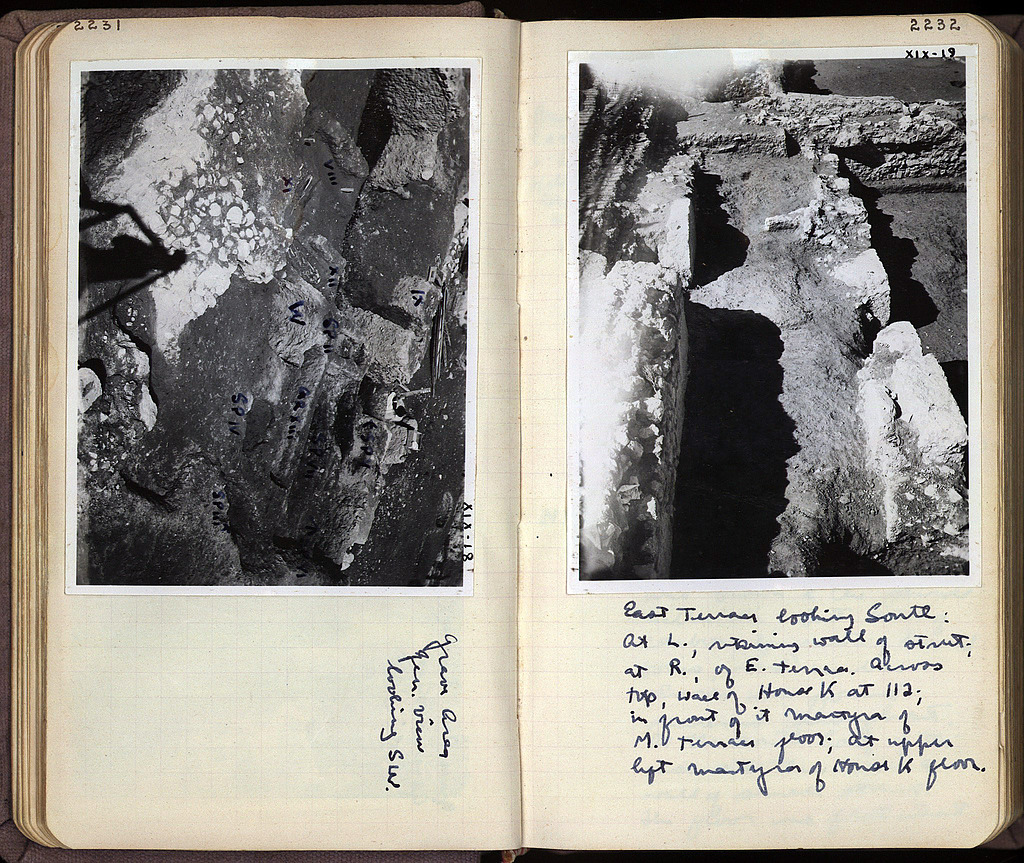 2231
VIII
XI
XII
IX
W
SP II
SP IV
XIX-18
Grave Area
gen. view
looking SW.
2232
XIX-19
East Terrace looking South:
At L., retaining wall of street;
at R., of E. terrace. Across
top, wall of House K at 112;
in front of it martyra of
M. Terrace floor; at upper
left martyra of House K floor.